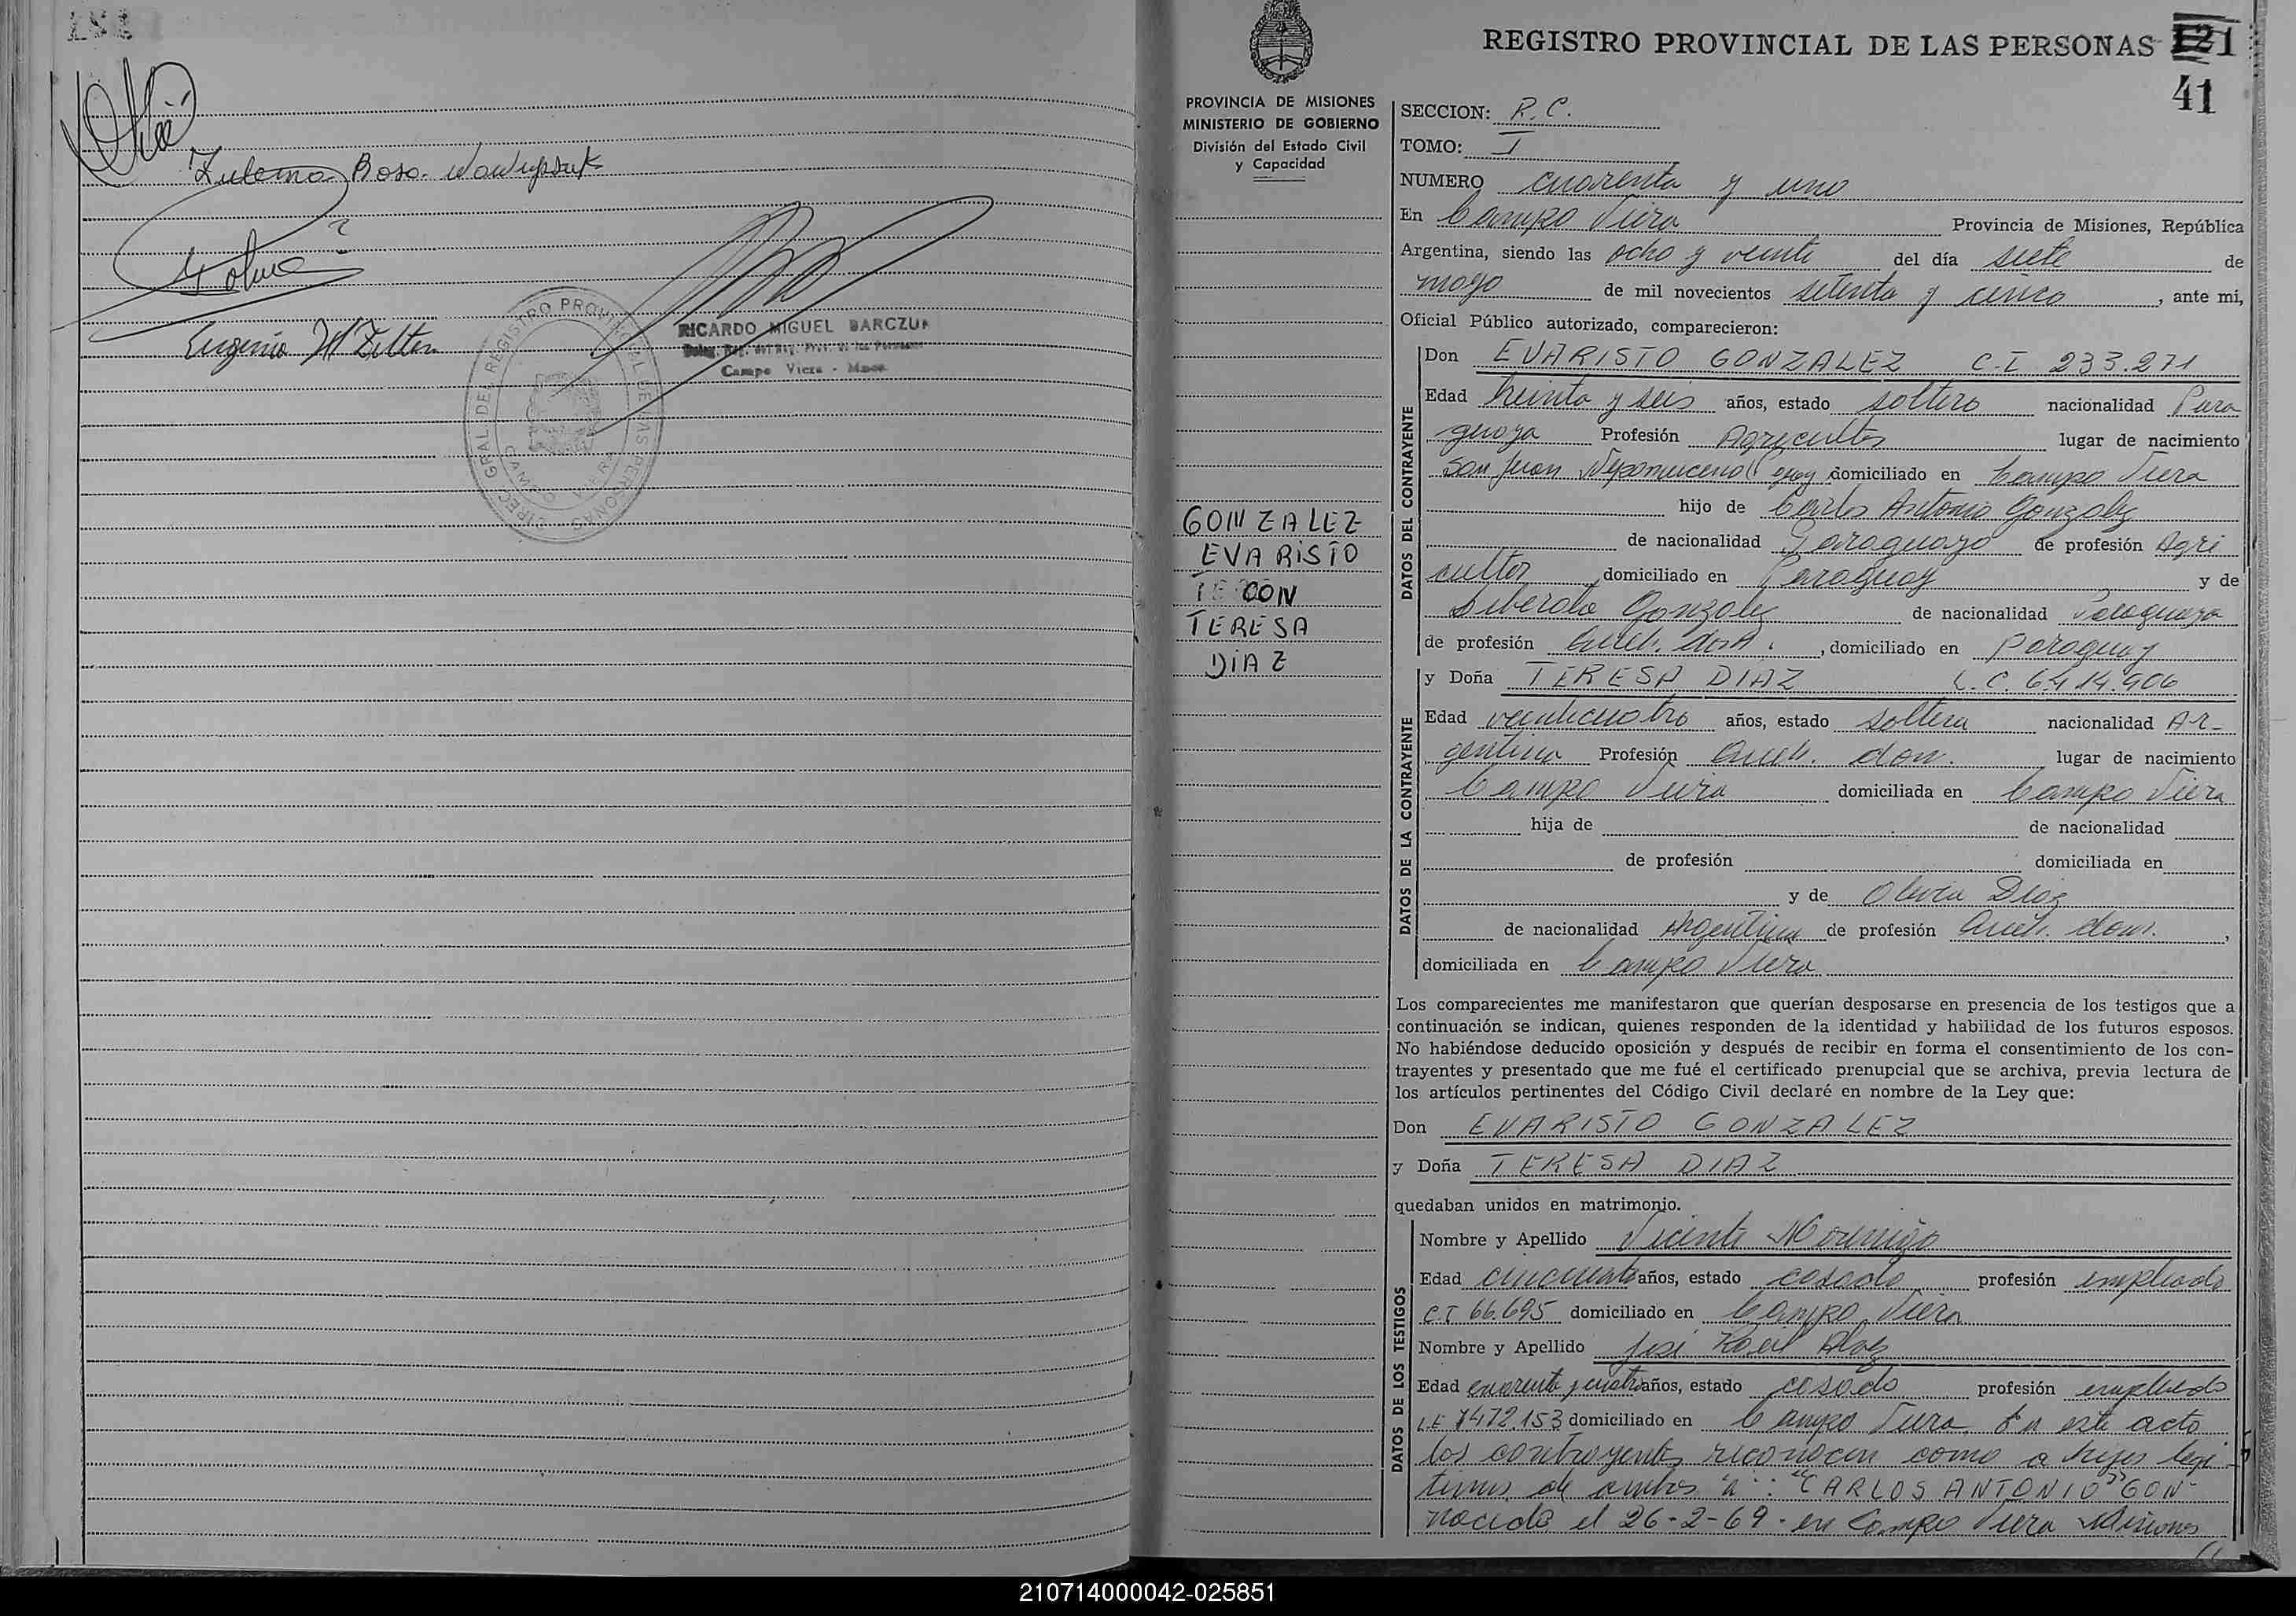 Zulema Rosa
Eugenio
DIREC. GRAL. DEL REGISTRO PROVINCIAL DE LAS PERSONAS
CAMPO VIERA
RICARDO MIGUEL BARCZUK
Deleg. Reg. del Reg. Prov. de las Personas
Campo Viera - Mnes.
REGISTRO PROVINCIAL DE LAS PERSONAS 121
41
PROVINCIA DE MISIONES
MINISTERIO DE GOBIERNO
División del Estado Civil
y Capacidad
GONZALEZ
EVARISTO
CON
TERESA
DIAZ
SECCION: R.C.
TOMO: I
NUMERO cuarenta y uno
En Campo Viera Provincia de Misiones, República
Argentina, siendo las ocho y veinte del día siete de
mayo de mil novecientos setenta y cinco, ante mi,
Oficial Público autorizado, comparecieron:
DATOS DEL CONTRAYENTE
Don EVARISTO GONZALEZ C.I. 233.271
Edad treinta y seis años, estado soltero nacionalidad Para
guaya Profesión Agricultor lugar de nacimiento
San Juan Nepomuceno domiciliado en Campo Viera
hijo de Carlos Antonio Gonzalez
de nacionalidad Paraguayo de profesión Agri
cultor, domiciliado en Paraguay y de
Liberata Gonzalez de nacionalidad Paraguaya
de profesión Queh. dom., domiciliado en Paraguay
DATOS DE LA CONTRAYENTE
y Doña TERESA DIAZ L.C. 6.414.906
Edad veinticuatro años, estado soltera nacionalidad Ar-
gentina Profesión Queh. dom. lugar de nacimiento
Campo Viera domiciliada en Campo Viera
hija de de nacionalidad
de profesión domiciliada en
y de Olivia Diaz
de nacionalidad Argentina de profesión Queh. dom.,
domiciliada en Campo Viera
Los comparecientes me manifestaron que querían desposarse en presencia de los testigos que a
continuación se indican, quienes responden de la identidad y habilidad de los futuros esposos.
No habiéndose deducido oposición y después de recibir en forma el consentimiento de los con-
trayentes y presentado que me fué el certificado prenupcial que se archiva, previa lectura de
los artículos pertinentes del Código Civil declaré en nombre de la Ley que:
Don EVARISTO GONZALEZ
y Doña TERESA DIAZ
quedaban unidos en matrimonio.
DATOS DE LOS TESTIGOS
Nombre y Apellido Vicente
Edad cincuenta años, estado casado profesión empleado
C.I. 66.695 domiciliado en Campo Viera
Nombre y Apellido José
Edad cuarenta y cuatro años, estado casado profesión empleado
L.E 7472.153 domiciliado en Campo Viera. En este acto
los contrayentes reconocen como a hijos legi-
timos de ambos a: "CARLOS ANTONIO" GON-
nacido el 26-2-69- en Campo Viera Misiones
210714000042-025851